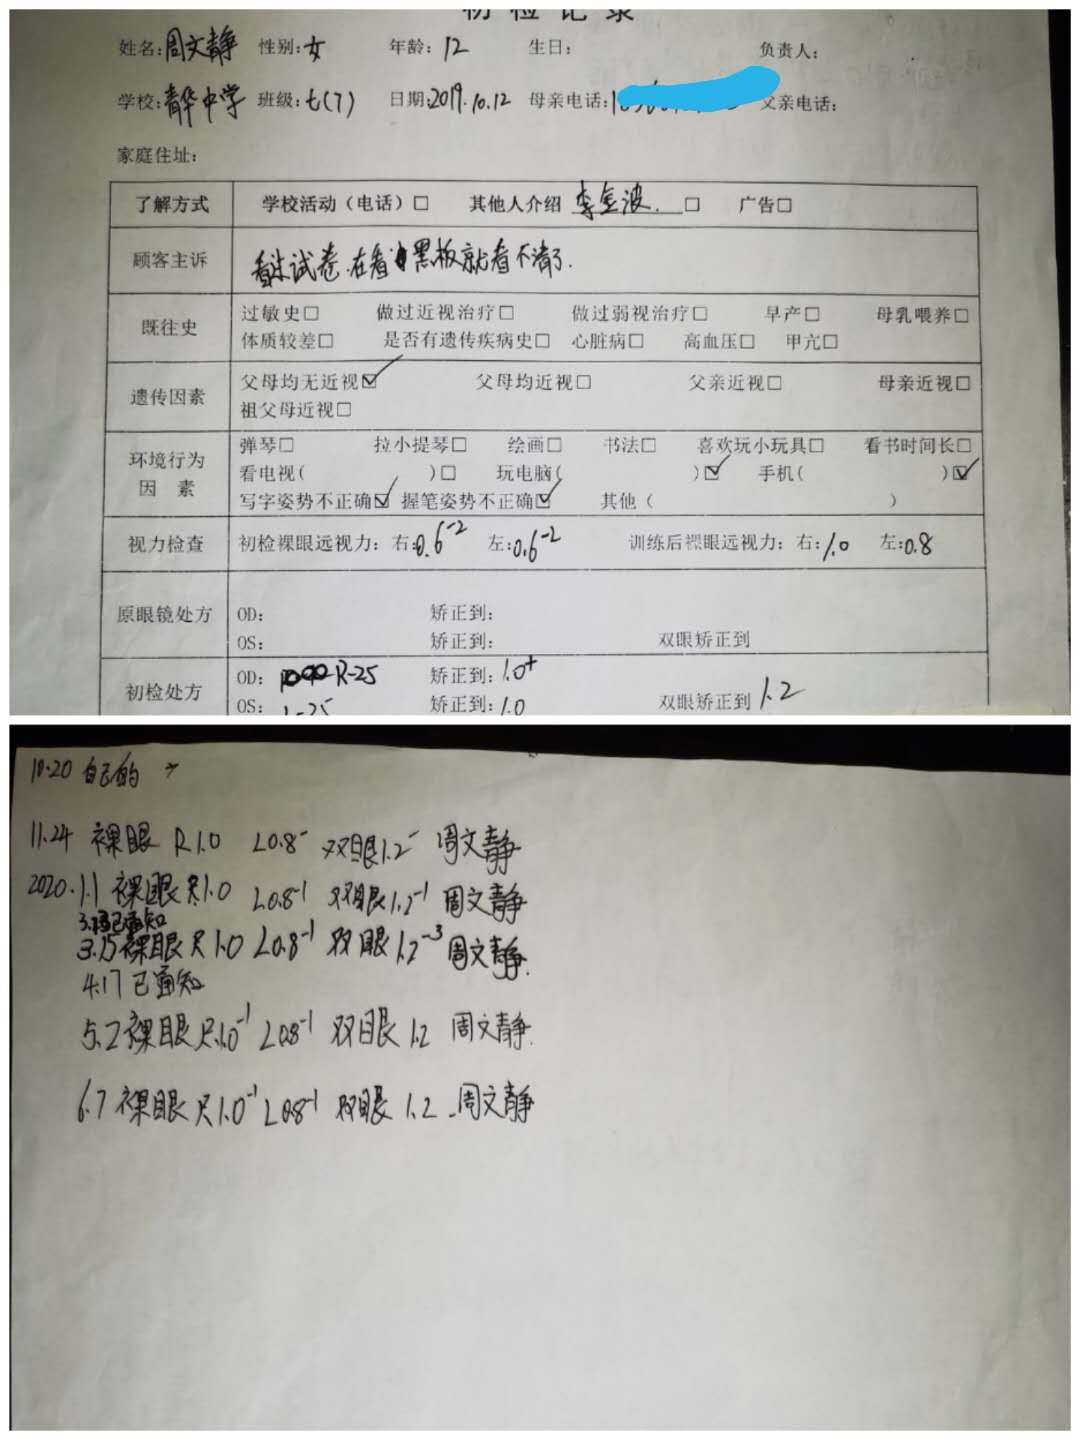 初检记录
姓名:周文静 性别:女 年龄:12 生日: 负责人:
学校:青华中学 班级:七(7) 日期:2019.10.12 母亲电话: 父亲电话:
家庭住址:
了解方式 学校活动（电话）□ 其他人介绍 李金波. □ 广告□
顾客主诉 看过试卷.在看黑板就看不清了.
既往史 过敏史□ 做过近视治疗□ 做过弱视治疗□ 早产□ 母乳喂养□
体质较差□ 是否有遗传疾病史□ 心脏病□ 高血压□ 甲亢□
遗传因素 父母均无近视☑ 父母均近视□ 父亲近视□ 母亲近视□
祖父母近视□
环境行为因素 弹琴□ 拉小提琴□ 绘画□ 书法□ 喜欢玩小玩具□ 看书时间长□
看电视( )□ 玩电脑( )☑ 手机( )☑
写字姿势不正确☑ 握笔姿势不正确☑ 其他（ ）
视力检查 初检裸眼远视力：右:0.6⁻² 左:0.6⁻² 训练后裸眼远视力：右:1.0 左:0.8
原眼镜处方 OD: 矫正到:
OS: 矫正到: 双眼矫正到
初检处方 OD: R-25 矫正到:1.0⁺
OS: L-25 矫正到:1.0 双眼矫正到 1.2
10.20 自己的
11.24 裸眼 R1.0 L0.8⁻ 双眼1.2⁻ 周文静
2020.1.1 裸眼 R1.0 L0.8⁻¹ 双眼1.2⁻¹ 周文静
已通知
3.15裸眼 R1.0 L0.8⁻¹ 双眼1.2⁻³ 周文静.
4.17 已通知
5.2裸眼 R1.0⁻¹ L0.8⁻¹ 双眼 1.2 周文静.
6.7 裸眼 R1.0⁻¹ L0.8⁻¹ 双眼 1.2 周文静